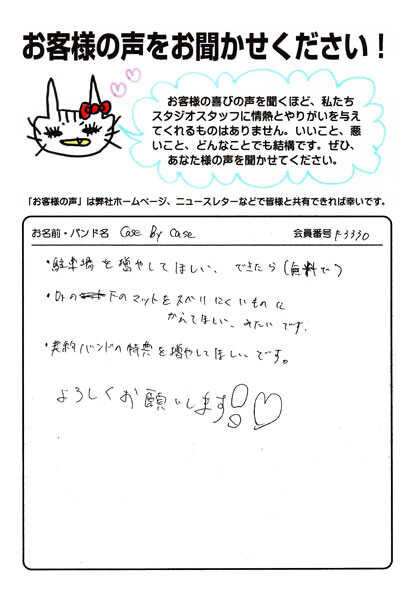 お客様の声をお聞かせください！
お客様の喜びの声を聞くほど、私たち
スタジオスタッフに情熱とやりがいを与え
てくれるものはありません。いいこと、悪
いこと、どんなことでも結構です。ぜひ、
あなた様の声を聞かせてください。
「お客様の声」は弊社ホームページ、ニュースレターなどで皆様と共有できれば幸いです。
お名前・バンド名 Case By Case 会員番号 F3330
・駐車場を増やしてほしい、できたら（無料で）
・Drの下のマットをスベリにくいものに
かえてほしい、みたいです、
・契約バンドの特典を増やしてほしいです。
よろしくお願いします!!♡